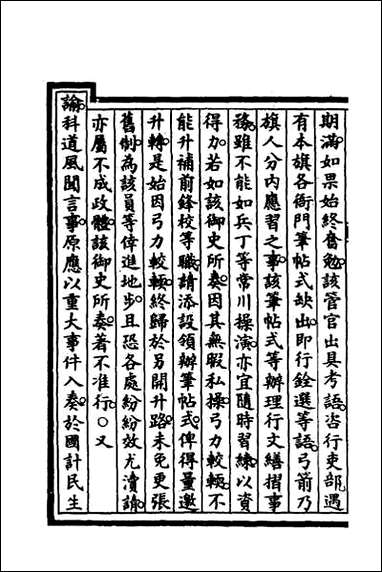 期滿。如果始終奮勉。該管官出具考語。咨行吏部。遇
有本旗各衙門筆帖式缺出。即行銓選等語。弓箭乃
旗人分內應習之事。該筆帖式等辦理行文繕摺事
務。雖不能如兵丁等常川操演。亦宜隨時習練。以資
得力。若如該御史所奏。因其無暇私操。弓力較輭。不
能升補前鋒校等職。請添設領辦筆帖式。俾得量邀
升轉。是始因弓力較輭。終歸於另開升路。未免更張
舊制。為該員等倖進地步。且恐各處紛紛效尤瀆請。
亦屬不成政體。該御史所奏。著不准行。○又
諭。科道風聞言事。原應以重大事件入奏。於國計民生